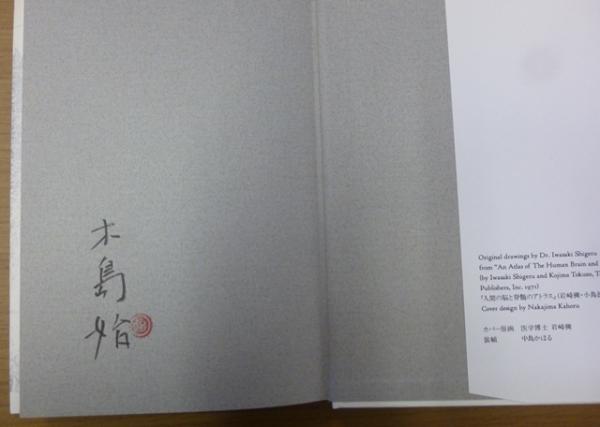 木
島
始
Original drawings by Dr. Iwasaki Shigeru
from "An Atlas of The Human Brain and
(by Iwasaki Shigeru and Kojima Tokuzo, T
Publishers, Inc. 1971)
『人間の脳と脊髄のアトラス』(岩崎
Cover design by Nakajima Kahoru
カバー原画 医学博士 岩崎
装幀 中島かほる